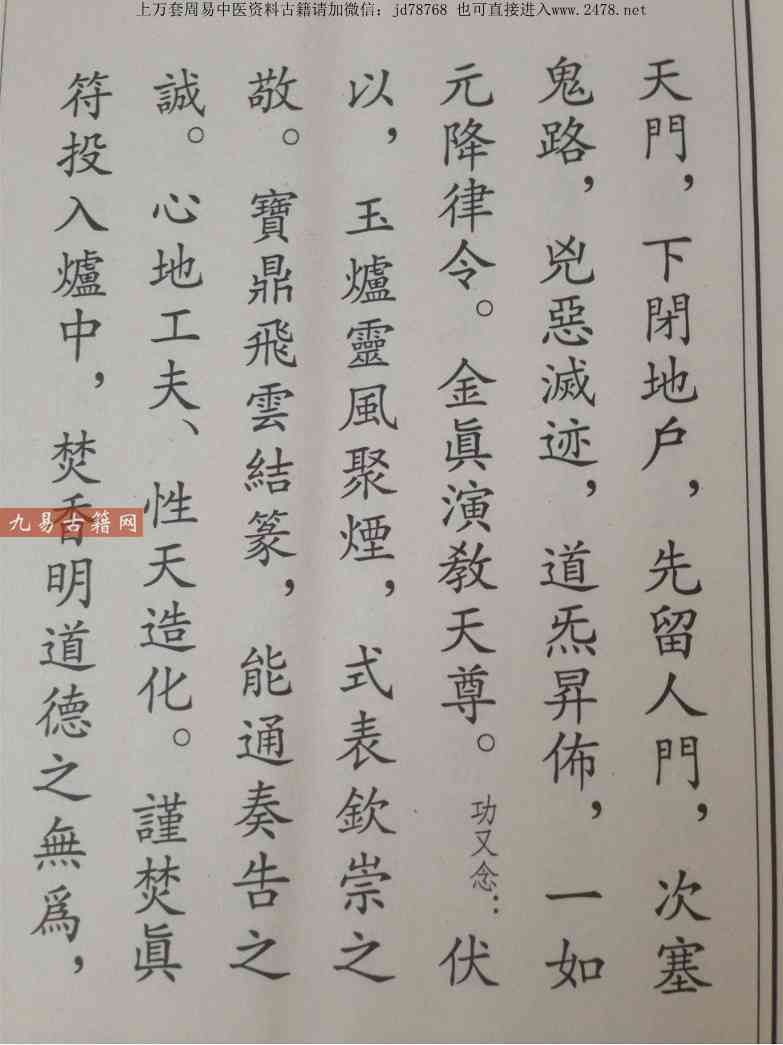 上万套周易中医资料古籍请加微信：jd78768 也可直接进入www.2478.net
天門，下閉地户，先留人門，次塞
鬼路，兇惡滅迹，道炁昇佈，一如
元降律令。金眞演教天尊。功又念：伏
以，玉爐靈風聚煙，式表欽崇之
敬。寶鼎飛雲結篆，能通奏告之
誠。心地工夫、性天造化。謹焚眞
符投入爐中，焚香明道德之無爲，
九易古籍网